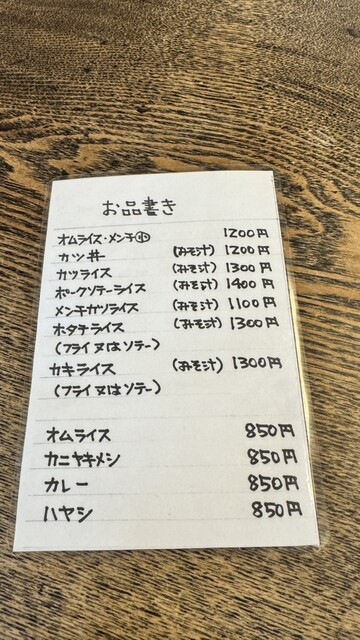 お品書き
オムライス・メンチ㊥ 1200円
カツ丼 (みそ汁) 1200円
カツライス (みそ汁) 1300円
ポークソテーライス (みそ汁) 1400円
メンチカツライス (みそ汁) 1100円
ホタテライス (みそ汁) 1300円
(フライ又はソテー)
カキライス (みそ汁) 1300円
(フライ又はソテー)
オムライス 850円
カニヤキメシ 850円
カレー 850円
ハヤシ 850円